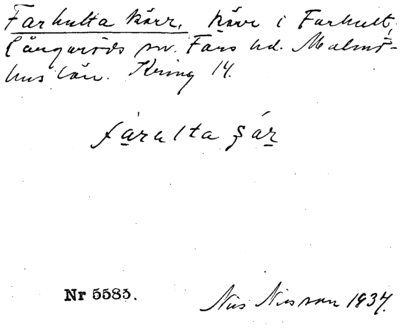 Farhulta kärr. Kärr i Farhult,
Långaröds sn. Färs hd. Malmö-
hus län. Kring 14.
fárulta ʂár
Nr 5585.
Nils Nilsson 1937.